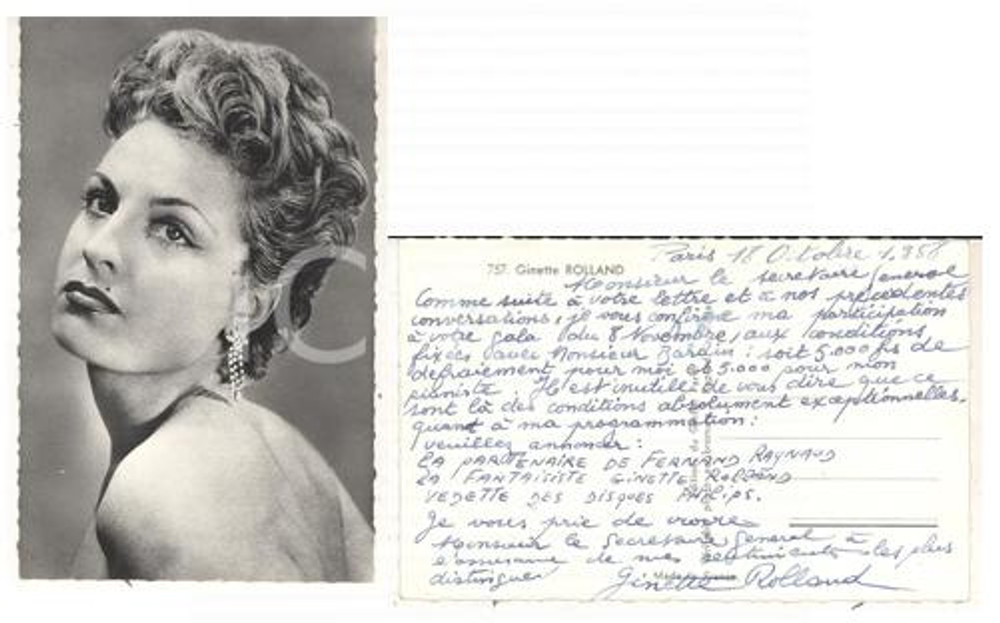 757. Ginette ROLLAND
Paris 18 Octobre 1.958
Monsieur le secretaire General
Comme suite à votre lettre et à nos précédentes
conversations, je vous confirme ma participation
à votre gala du 8 Novembre, aux conditions
fixées avec Monsieur : soit 5.000 frs de
defraiement pour moi et 5.000 pour mon
pianiste Il est inutile de vous dire que ce
sont là des conditions absolument exceptionnelles.
quant à ma programmation :
veuillez annoncer :
LA PARTENAIRE DE FERNAND RAYNAUD
LA FANTAISISTE GINETTE ROLLAND
VEDETTE DES DISQUES PHILIPS.
Je vous prie de croire
Monsieur le Secretaire General à
l'assurance de mes sentiments les plus
distingués
Ginette Rolland